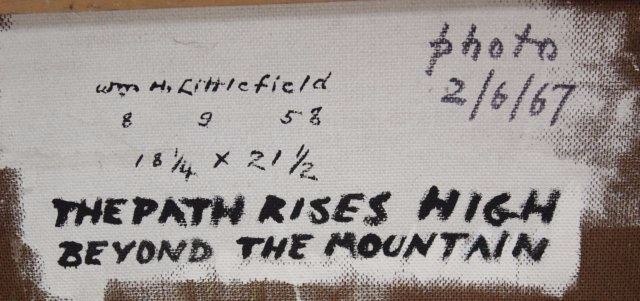 photo
2/6/67
Wm H. Littlefield
8 9 58
18 1/4 x 21 1/2
THE PATH RISES HIGH
BEYOND THE MOUNTAIN